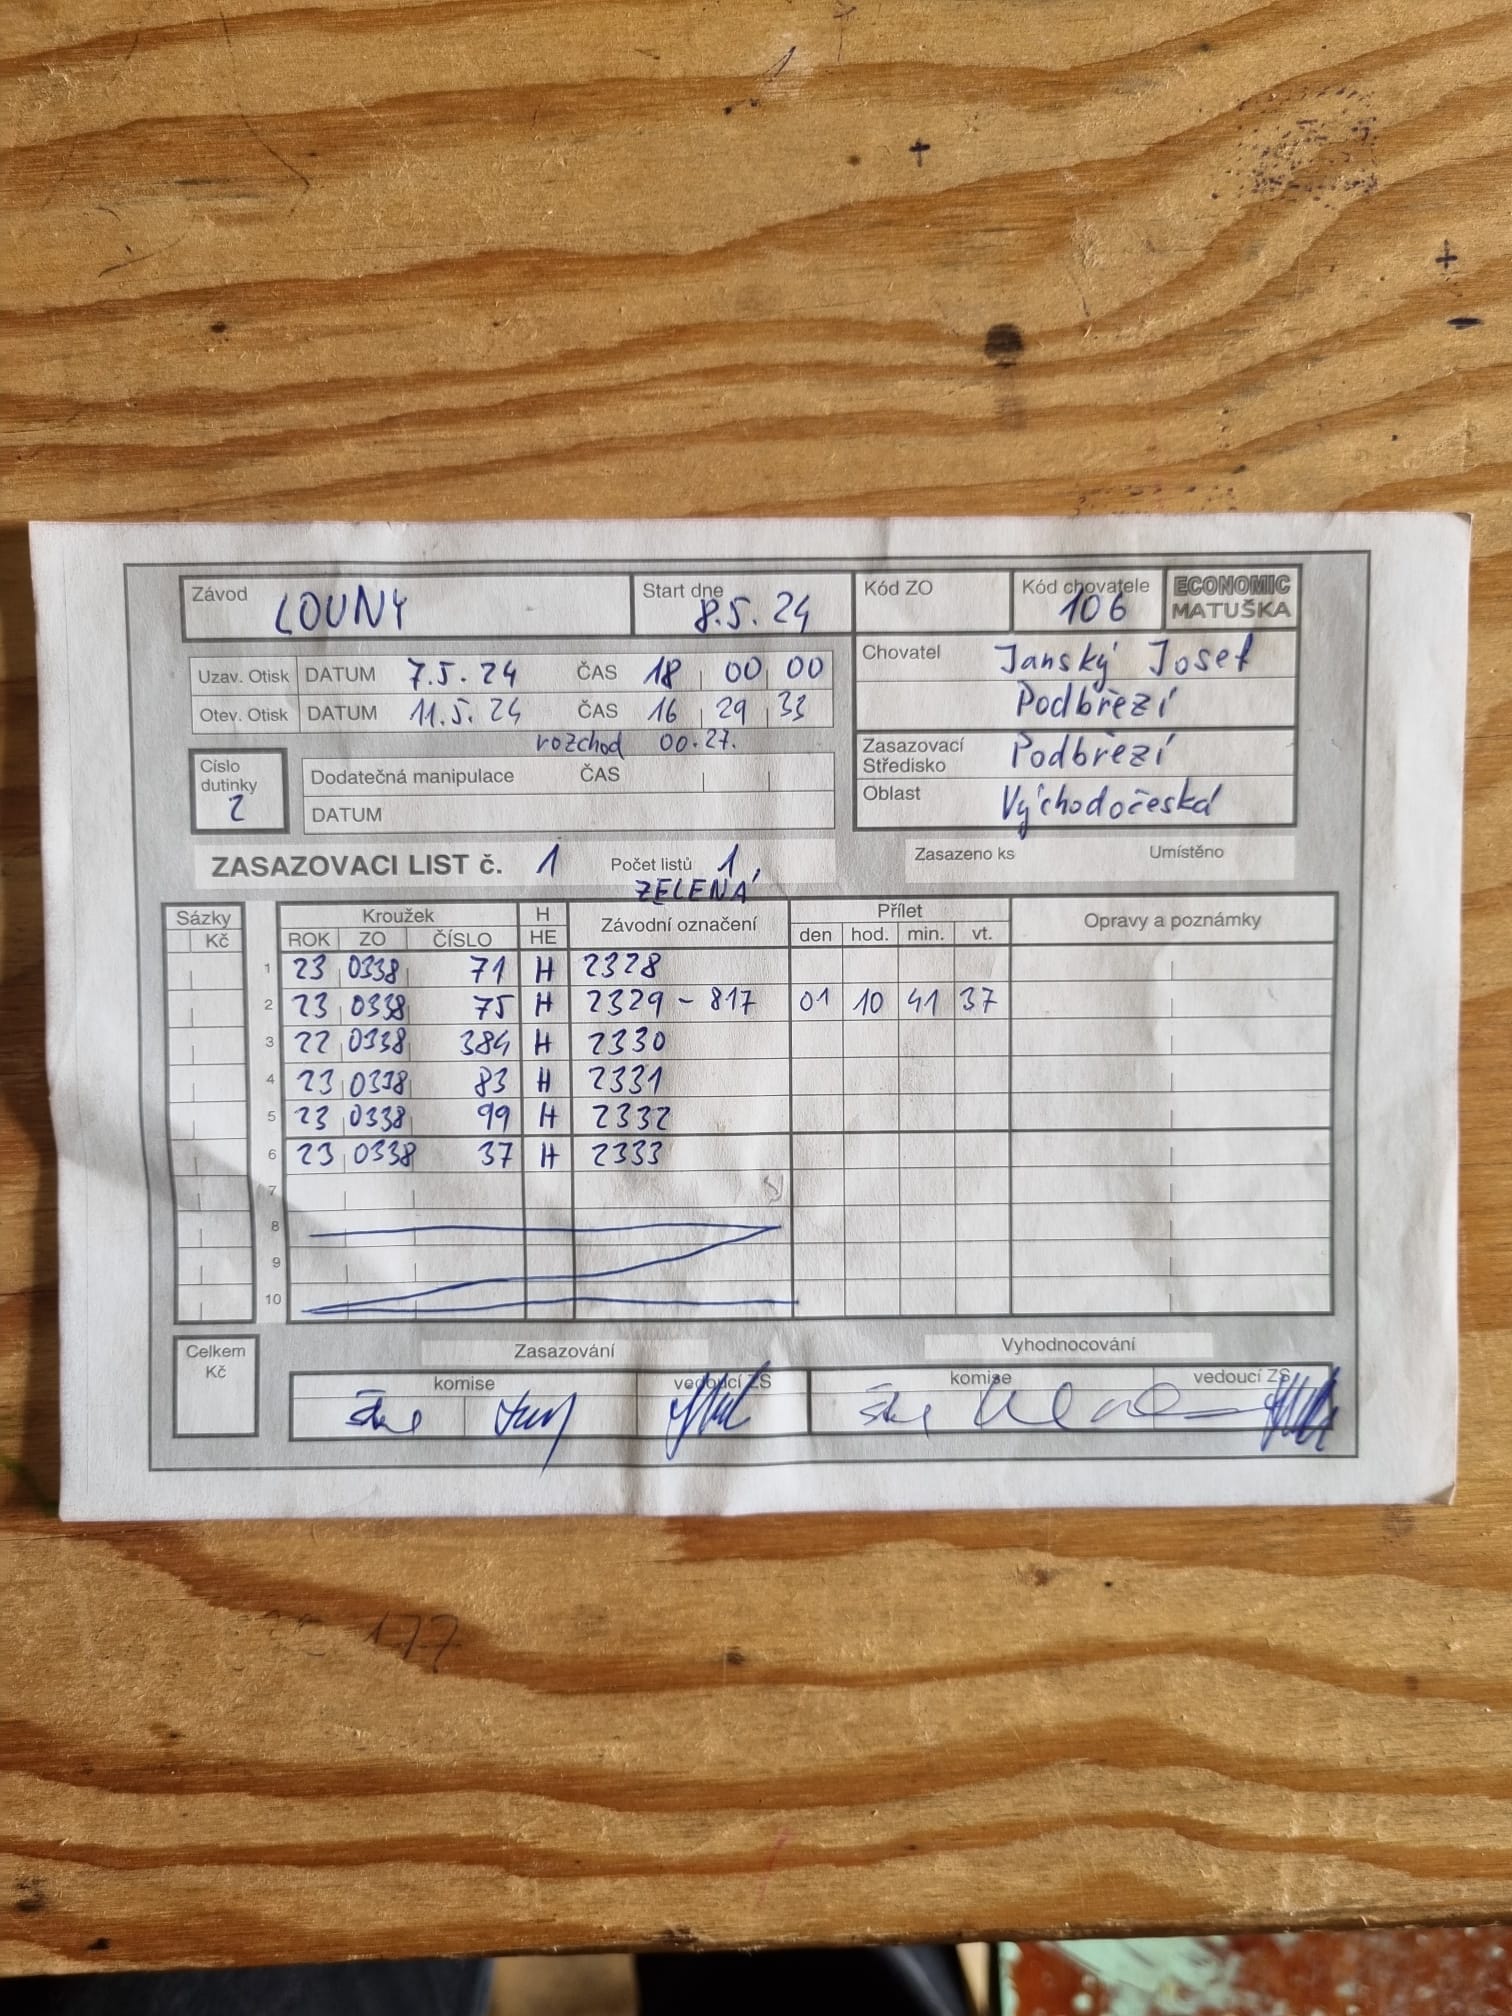 Závod LOUNY Start dne 8.5.24 Kód ZO Kód chovatele 106 ECONOMIC MATUŠKA
Uzav. Otisk DATUM 7.5.24 ČAS 18 00 00
Otev. Otisk DATUM 11.5.24 ČAS 16 29 33
rozchod 00.27.
Chovatel Janský Josef
Podbřezí
Zasazovací Středisko Podbřezí
Oblast Východočeská
Číslo dutinky 2
Dodatečná manipulace ČAS
DATUM
ZASAZOVACI LIST č. 1 Počet listů 1, Zasazeno ks Umístěno
ZELENÁ
Sázky Kroužek H Závodní označení Přílet Opravy a poznámky
Kč ROK ZO ČÍSLO HE den hod. min. vt.
1 23 0338 71 H 2328
2 23 0338 75 H 2329 - 817 01 10 41 37
3 22 0338 384 H 2330
4 23 0338 83 H 2331
5 23 0338 99 H 2332
6 23 0338 37 H 2333
7
8
9
10
Celkem Kč Zasazování Vyhodnocování
komise vedoucí ZS komise vedoucí ZS
177